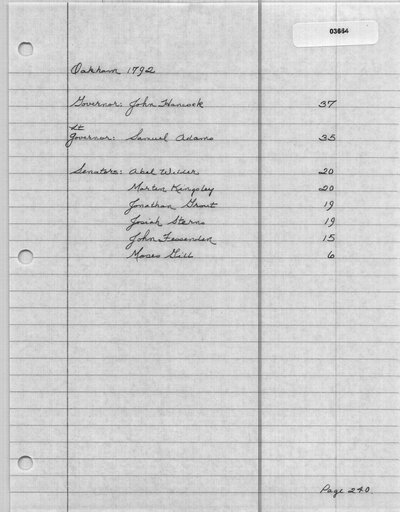 03664
Oakham 1792
Governor: John Hancock 37
Lt
Governor: Samuel Adams 35
Senators: Abel Wilder 20
Marten Kingsley 20
Jonathan Grout 19
Josiah Sterns 19
John Fessenden 15
Moses Gill 6
Page 240.